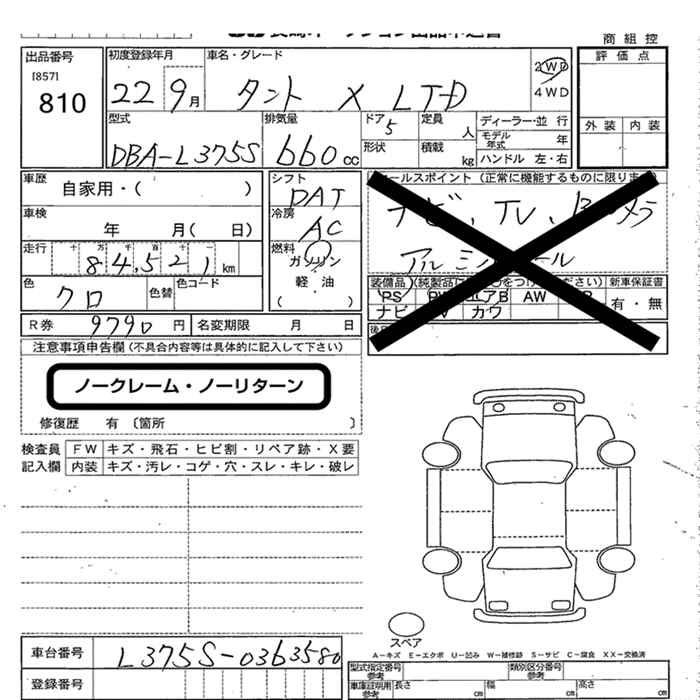 商 組 控
出品番号
[857]
810
初度登録年月
22 9月
車名・グレード
タント X LTD
2WD
4WD
評 価 点
外 装 内 装
型式
DBA-L375S
排気量
660cc
ドア 5
形状
定員 人
積載 kg
ディーラー・並 行
モデル年式 年
ハンドル 左・右
車歴
自家用・( )
車検
年 月( 日)
走行 十 万 千 百 十 一
84,521 km
色
クロ
色替
色コード
シフト
DAT
冷房
AC
燃料
ガソリン
軽 油
ールスポイント (正常に機能するものに限りま
ナビ、TV、
アルミ
装備品
新車保証書
有・無
PS AW
ナビ カワ
R券 9790 円
名変期限 月 日
注意事項申告欄 (不具合内容等は具体的に記入して下さい)
ノークレーム・ノーリターン
修復歴 有 〔箇所 〕
検査員 FW キズ・飛石・ヒビ割・リペア跡・X要
記入欄 内装 キズ・汚レ・コゲ・穴・スレ・キレ・破レ
スペア
A-キズ E-エクボ U-凹み W-補修跡 S-サビ C-腐食 XX-交換済
車台番号 L375S-0363580
登録番号
型式指定番号 参考
類別区分番号 参考
車庫証明用 参考 長さ cm 幅 cm 高さ cm